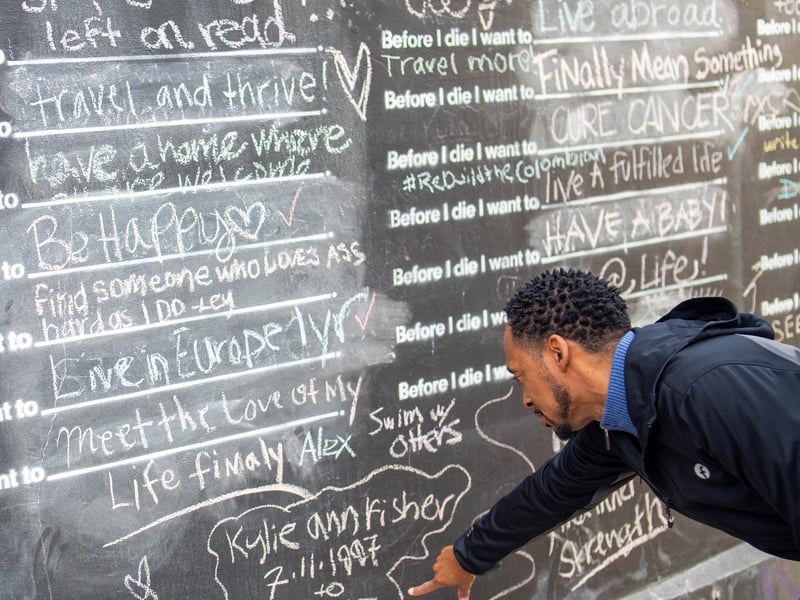 left on read
to
travel and thrive!
to
have a home where
the welcome
to
Be Happy
to
find someone who Loves ASS
hard as I DO -Ley
t to
Live in Europe 1yr
nt to
Meet the Love of My
Life finaly Alex
nt to
Kylie ann Fisher
7.11.1987
to
Live abroad
Before I die I want to
Travel more
Finally Mean Something
Before I die I want to
CURE CANCER
Before I die I want to
#RebuildtheColombian
live A fulfilled life
Before I die I want to
HAVE A BABY!
Before I die I want to
@ Life!
Before I die I want to
Before I die I w
Swim w/
Otters
inner
Strength
Before
Before I
Before I
write
Before I
Before I
Before I
Before I